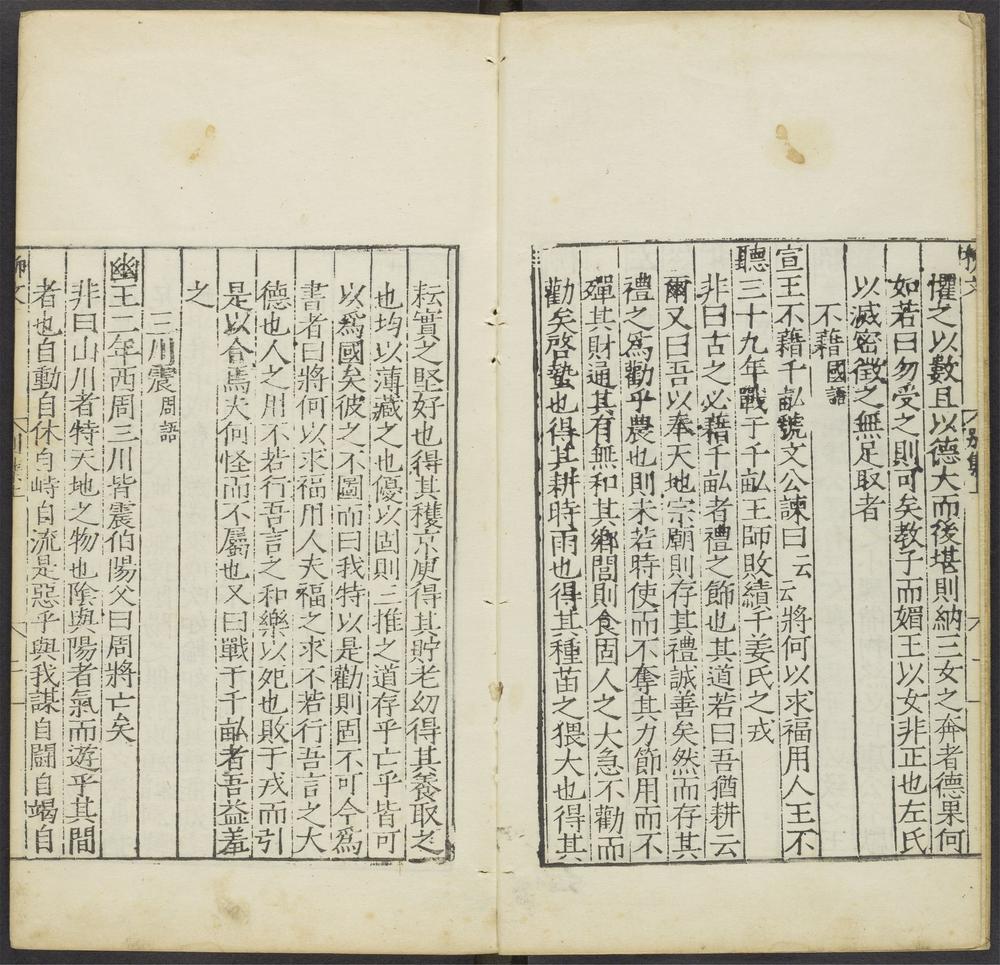 懼之以數且以德大而後堪則納三女之奔者德果何
如若曰勿受之則可矣教子而媚王以女非正也左氏
以滅密徵之無足取者
不藉國語
宣王不藉千畝虢文公諫曰云云將何以求福用人王不
聽三十九年戰于千畝王師敗績于姜氏之戎
非曰古之必藉千畝者禮之飾也其道若曰吾猶耕云
爾又曰吾以奉天地宗廟則存其禮誠善矣然而存其
禮之爲勸乎農也則未若時使而不奪其力節用而不
殫其財通其有無和其鄉閭則食固人之大急不勸而
勸矣啓蟄也得其耕時雨也得其種苗之猥大也得其
耘實之堅好也得其穫京庾得其貯老幼得其養取之
也均以薄藏之也優以固則三推之道存乎亡乎皆可
以爲國矣彼之不圖而曰我特以是勸則固不可今爲
書者曰將何以求福用人夫福之求不若行吾言之大
德也人之用不若行吾言之和樂以死也敗于戎而引
是以合焉夫何怪而不屬也又曰戰于千畝者吾益羞
之
三川震周語
幽王二年西周三川皆震伯陽父曰周將亡矣
非曰山川者特天地之物也陰與陽者氣而遊乎其間
者也自動自休自峙自流是惡乎與我謀自鬭自竭自